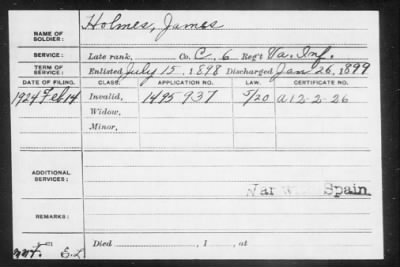 NAME OF SOLDIER: Holmes, James
SERVICE: Late rank, Co. C, 6 Reg't Va. Inf.
TERM OF SERVICE: Enlisted July 15, 1898 Discharged Jan 26, 1899
DATE OF FILING. CLASS. APPLICATION NO. LAW. CERTIFICATE NO.
1924 Feb 14 Invalid, 1495937 5/20 A 12-2-26
Widow,
Minor,
ADDITIONAL SERVICES: War with Spain.
REMARKS:
Died , 1 , at